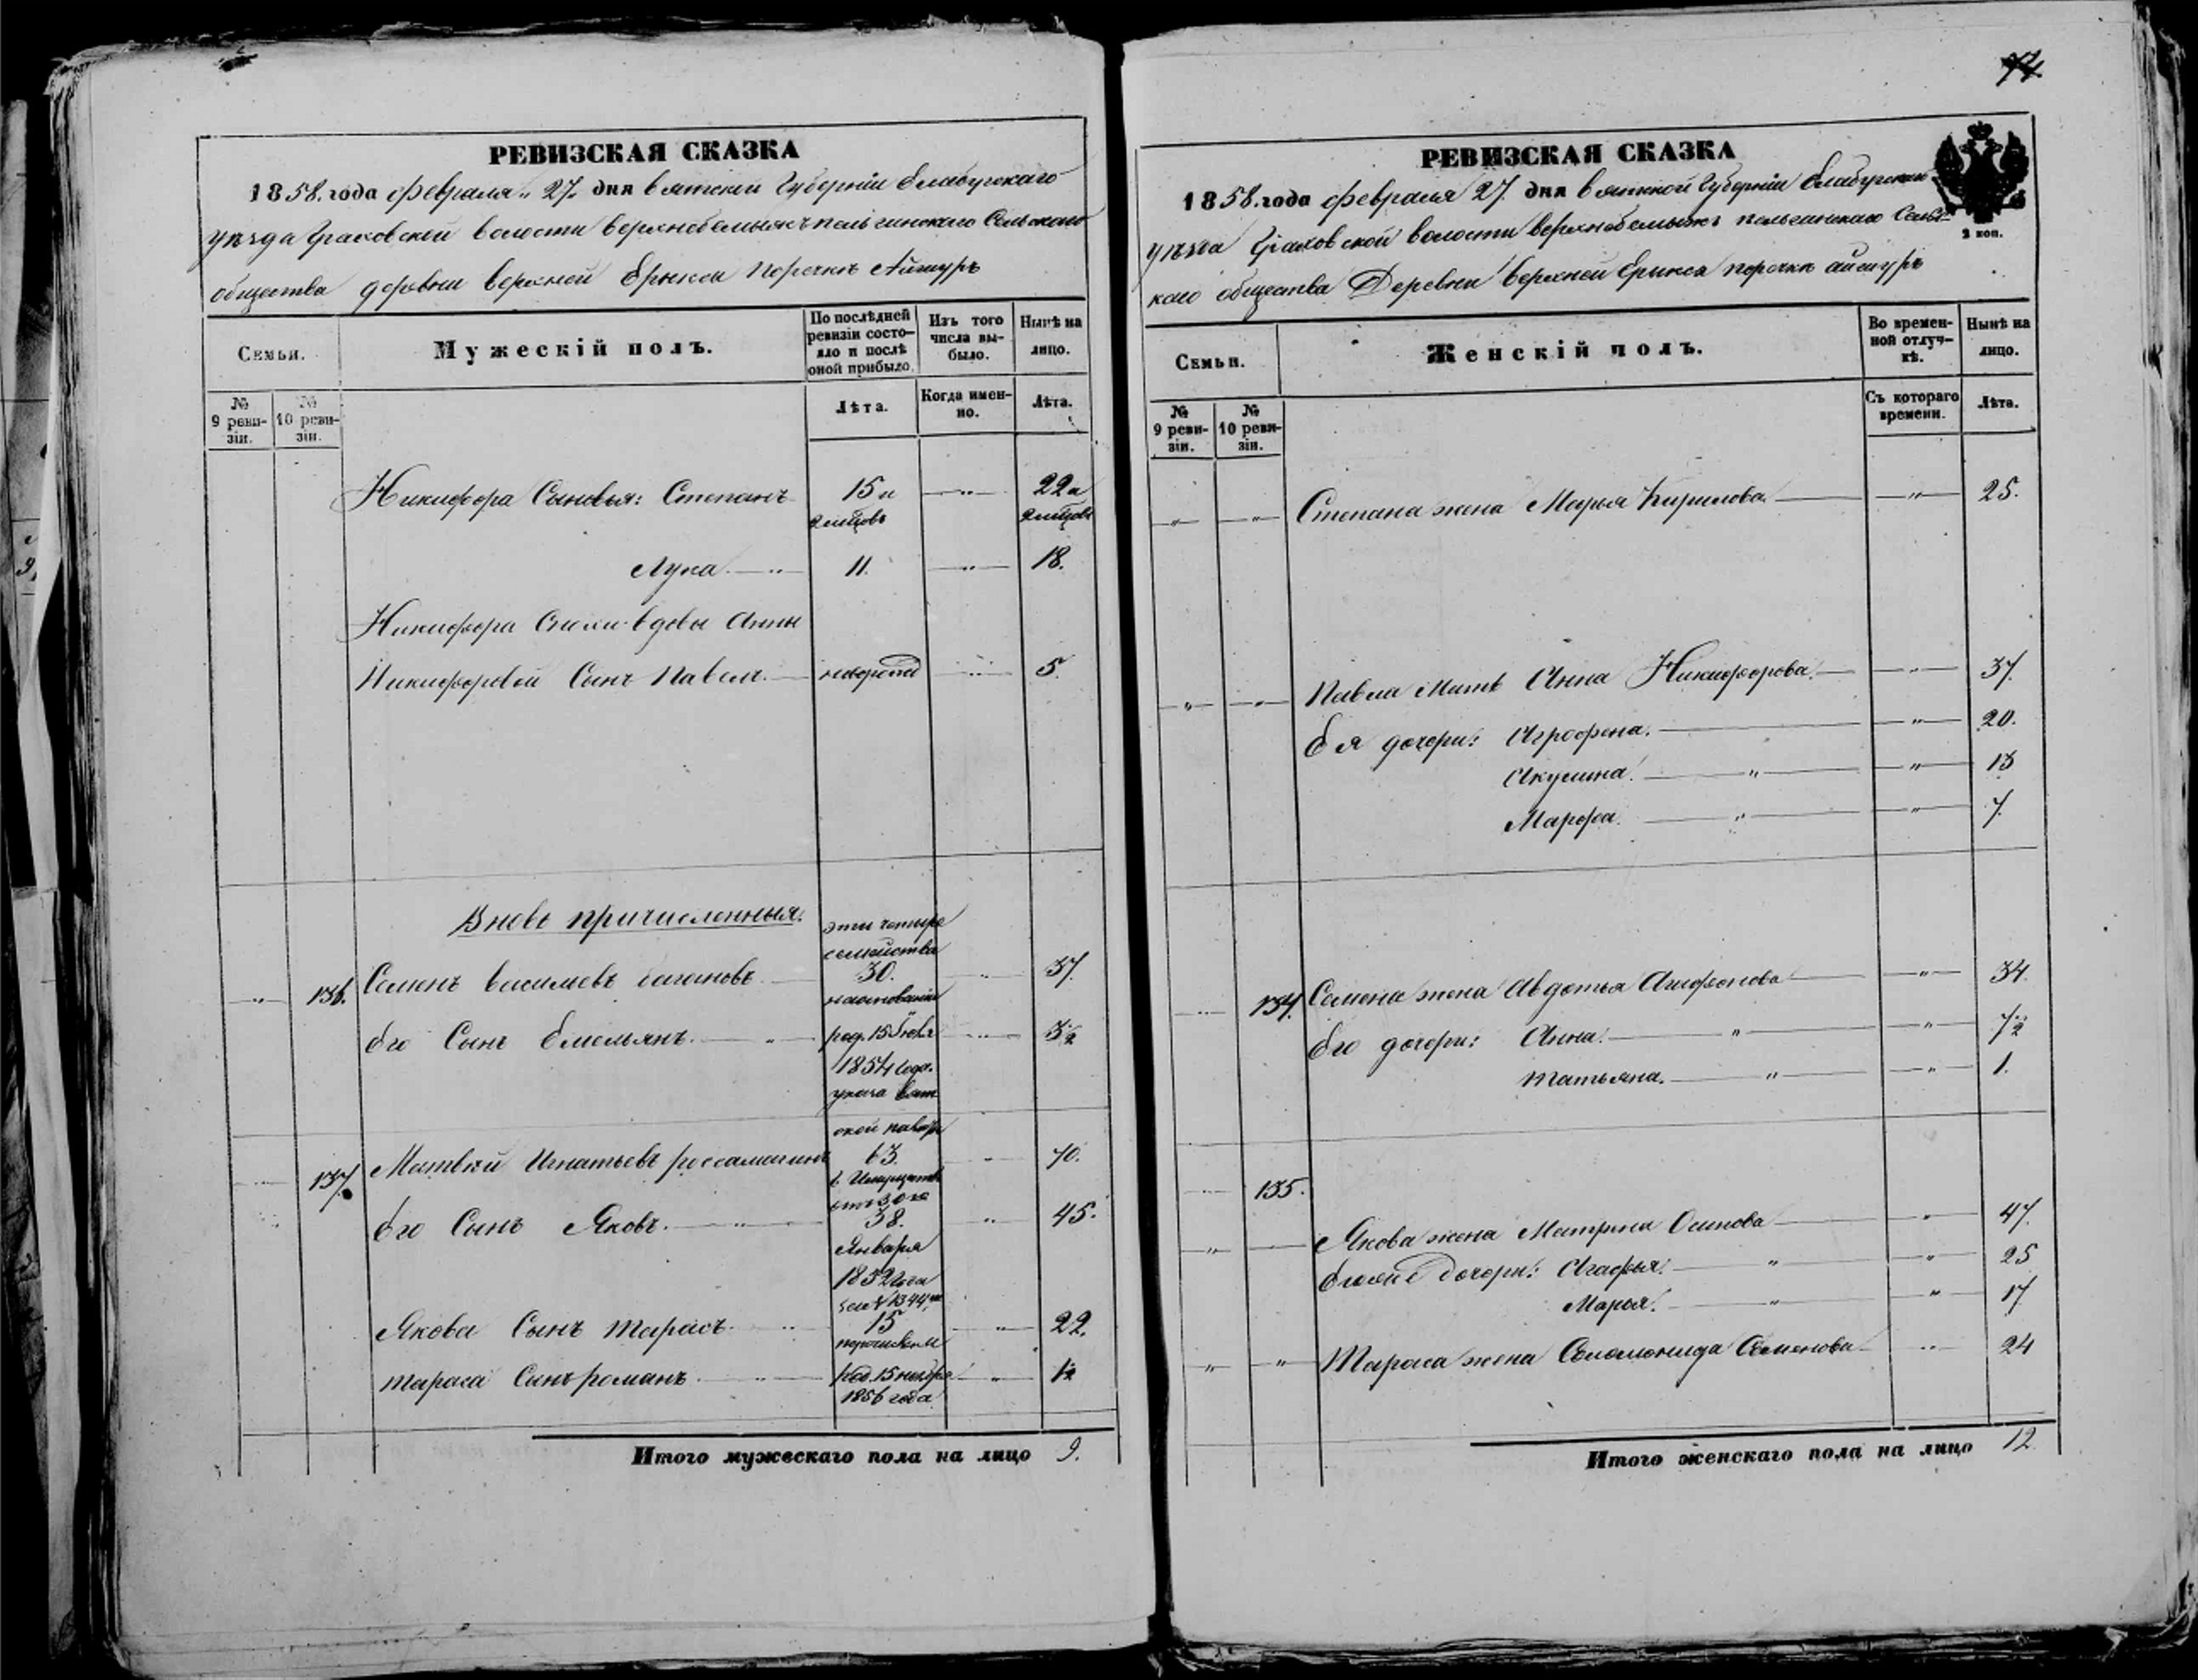 РЕВИЗСКАЯ СКАЗКА
1858. года февраля 27. дня Вятской Губерніи Елабугскаго
уѣзда Граховской волости Сельскаго
общества деревни верхней Ерыкса поречкѣ Айшуръ
Семьи.
Мужескій полъ.
По послѣдней ревизіи состояло и послѣ оной прибыло.
Изъ того числа выбыло.
Нынѣ на лицо.
№ 9 ревизіи.
№ 10 ревизіи.
Лѣта.
Когда именно.
Лѣта.
Никифора Сыновья: Степанъ 15 и —„— 22 и
Лука. —„— 11. —„— 18.
Никифора вдовы Анны
Никифоровой Сынъ Павелъ. — 5.
Вновь причисленныя. эти четыре
семейства
—„— 136. Семенъ васильевъ — 30. —„— 37.
наосновании
его Сынъ Емельянъ. —„— род. 15 —„— 3½
1854 года.
указа Вят
ской палаты
137. Матвей Игнатьевъ 63. „ 70.
его Сынъ Яковъ. —„— 38. „ 45.
Января
1852 года
за № 1344,
Якова Сынъ тарасъ. 15 —„— 22.
тараса Сынъ романъ. —„— Род. 15 — „ 1½
1856 года
Итого мужескаго пола на лицо 9.
74.
РЕВИЗСКАЯ СКАЗКА
2 коп.
1858. года февраля 27. дня Вятской Губерніи Елабугскаго
уѣзда Граховской волости Сельс-
каго общества Деревни верхней Ерыкса поречкѣ айшуръ
Семьи.
Женскій полъ.
Во временной отлучкѣ.
Нынѣ на лицо.
№ 9 ревизіи.
№ 10 ревизіи.
Съ котораго времени.
Лѣта.
—„— —„— Степана жена Марья Кирилова. — —„— 25.
—„— —„— Павла Мать Анна Никифорова. — —„— 37.
Ея дочери: Агрофена. — —„— 20.
Акулина. —„— —„— 13
Марфа. —„— —„— 7.
134. Семена жена Авдотья Агафонова — —„— 34.
Его дочери: Анна. —„— —„— 7½
татьяна. —„— —„— 1.
135.
—„— — Якова жена Матрена Осипова — „ 47.
дочери: Агафья. —„— „ 25
Марья. —„— „ 17
„ —„— Тараса жена Соломонида Семенова — 24
Итого женскаго пола на лицо 12.